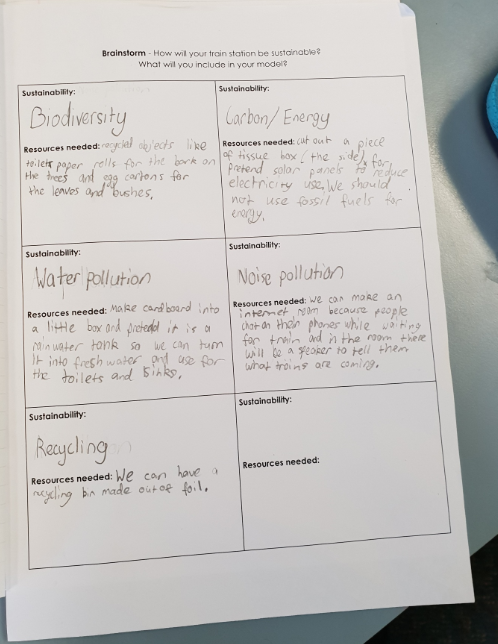 Brainstorm - How will your train station be sustainable?
What will you include in your model?
Sustainability:
Biodiversity
Resources needed: recycled objects like
toilet paper rolls for the bark on
the trees and egg cartons for
the leaves and bushes.
Sustainability:
Carbon/Energy
Resources needed: cut out a piece
of tissue box (the side) for
pretend solar panels to reduce
electricity use. We should
not use fossil fuels for
energy.
Sustainability:
Water pollution
Resources needed: Make cardboard into
a little box and pretend it is a
rain water tank so we can turn
it into fresh water and use for
the toilets and sinks.
Sustainability:
Noise pollution
Resources needed: We can make an
internet room because people
chat on their phones while waiting
for train and in the room there
will be a speaker to tell them
what trains are coming.
Sustainability:
Recycling
Resources needed: We can have a
recycling bin made out of foil.
Sustainability:
Resources needed: